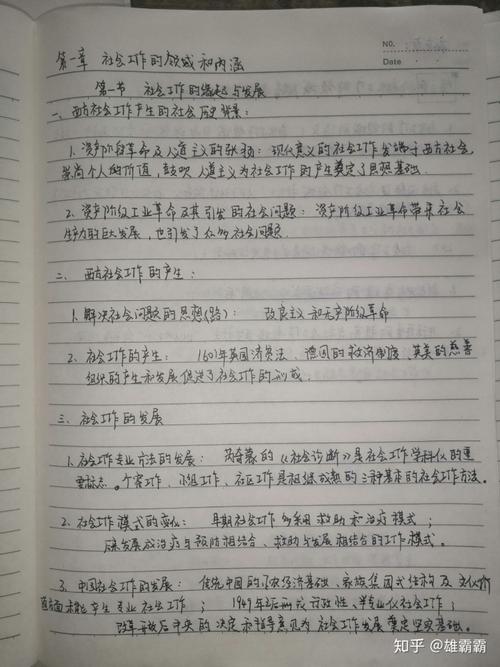 NO.
Date
第一章 社会工作的领域和内涵
第一节 社会工作的缘起与发展
一、西方社会工作产生的社会历史背景：
1. 资产阶级革命及人道主义的张扬：现代意义的社会工作发端于西方社会
崇尚个人的价值，鼓吹人道主义为社会工作的产生奠定了思想基础.
2. 资产阶级工业革命及其引发的社会问题：资产阶级工业革命带来社会
生产力的巨大发展，也引发了众多社会问题.
二、西方社会工作的产生：
1. 解决社会问题的思想(路)： 改良主义和无产阶级革命
2. 社会工作的产生： 1601年英国济贫法、德国的救济制度、英美的慈善
组织的产生和发展促进了社会工作的形成.
三、社会工作的发展
1. 社会工作专业方法的发展：芮奇蒙的《社会诊断》是社会工作学科化的重
要标志。个案工作、小组工作、社区工作是相继成熟的三种基本的社会工作方法。
2. 社会工作模式的变化： 早期社会工作多采用救助和治疗模式；
后来发展成治疗与预防相结合、救助与发展相结合的工作模式。
3. 中国社会工作的发展：传统中国的小农经济基础、家族集团式结构及文化价
值方面未能产生专业社会工作； 1949年之后形成行政性、半专业化社会工作；
改革开放后中央的决定和指导意见为社会工作发展奠定坚实基础。
知乎 @雄霸霸